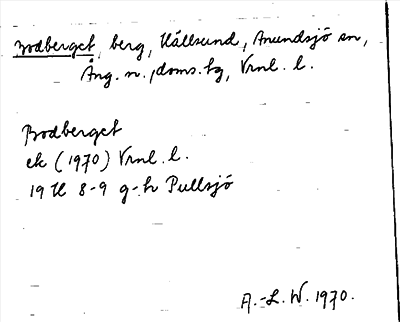 Brodberget, berg, Källsund, Anundsjö sn,
Ång. n., doms. tg, Vrnl. l.
Brodberget
ek (1970) Vrnl. l.
19 H 8-9 g-h Pullsjö
A.-L. W. 1970.